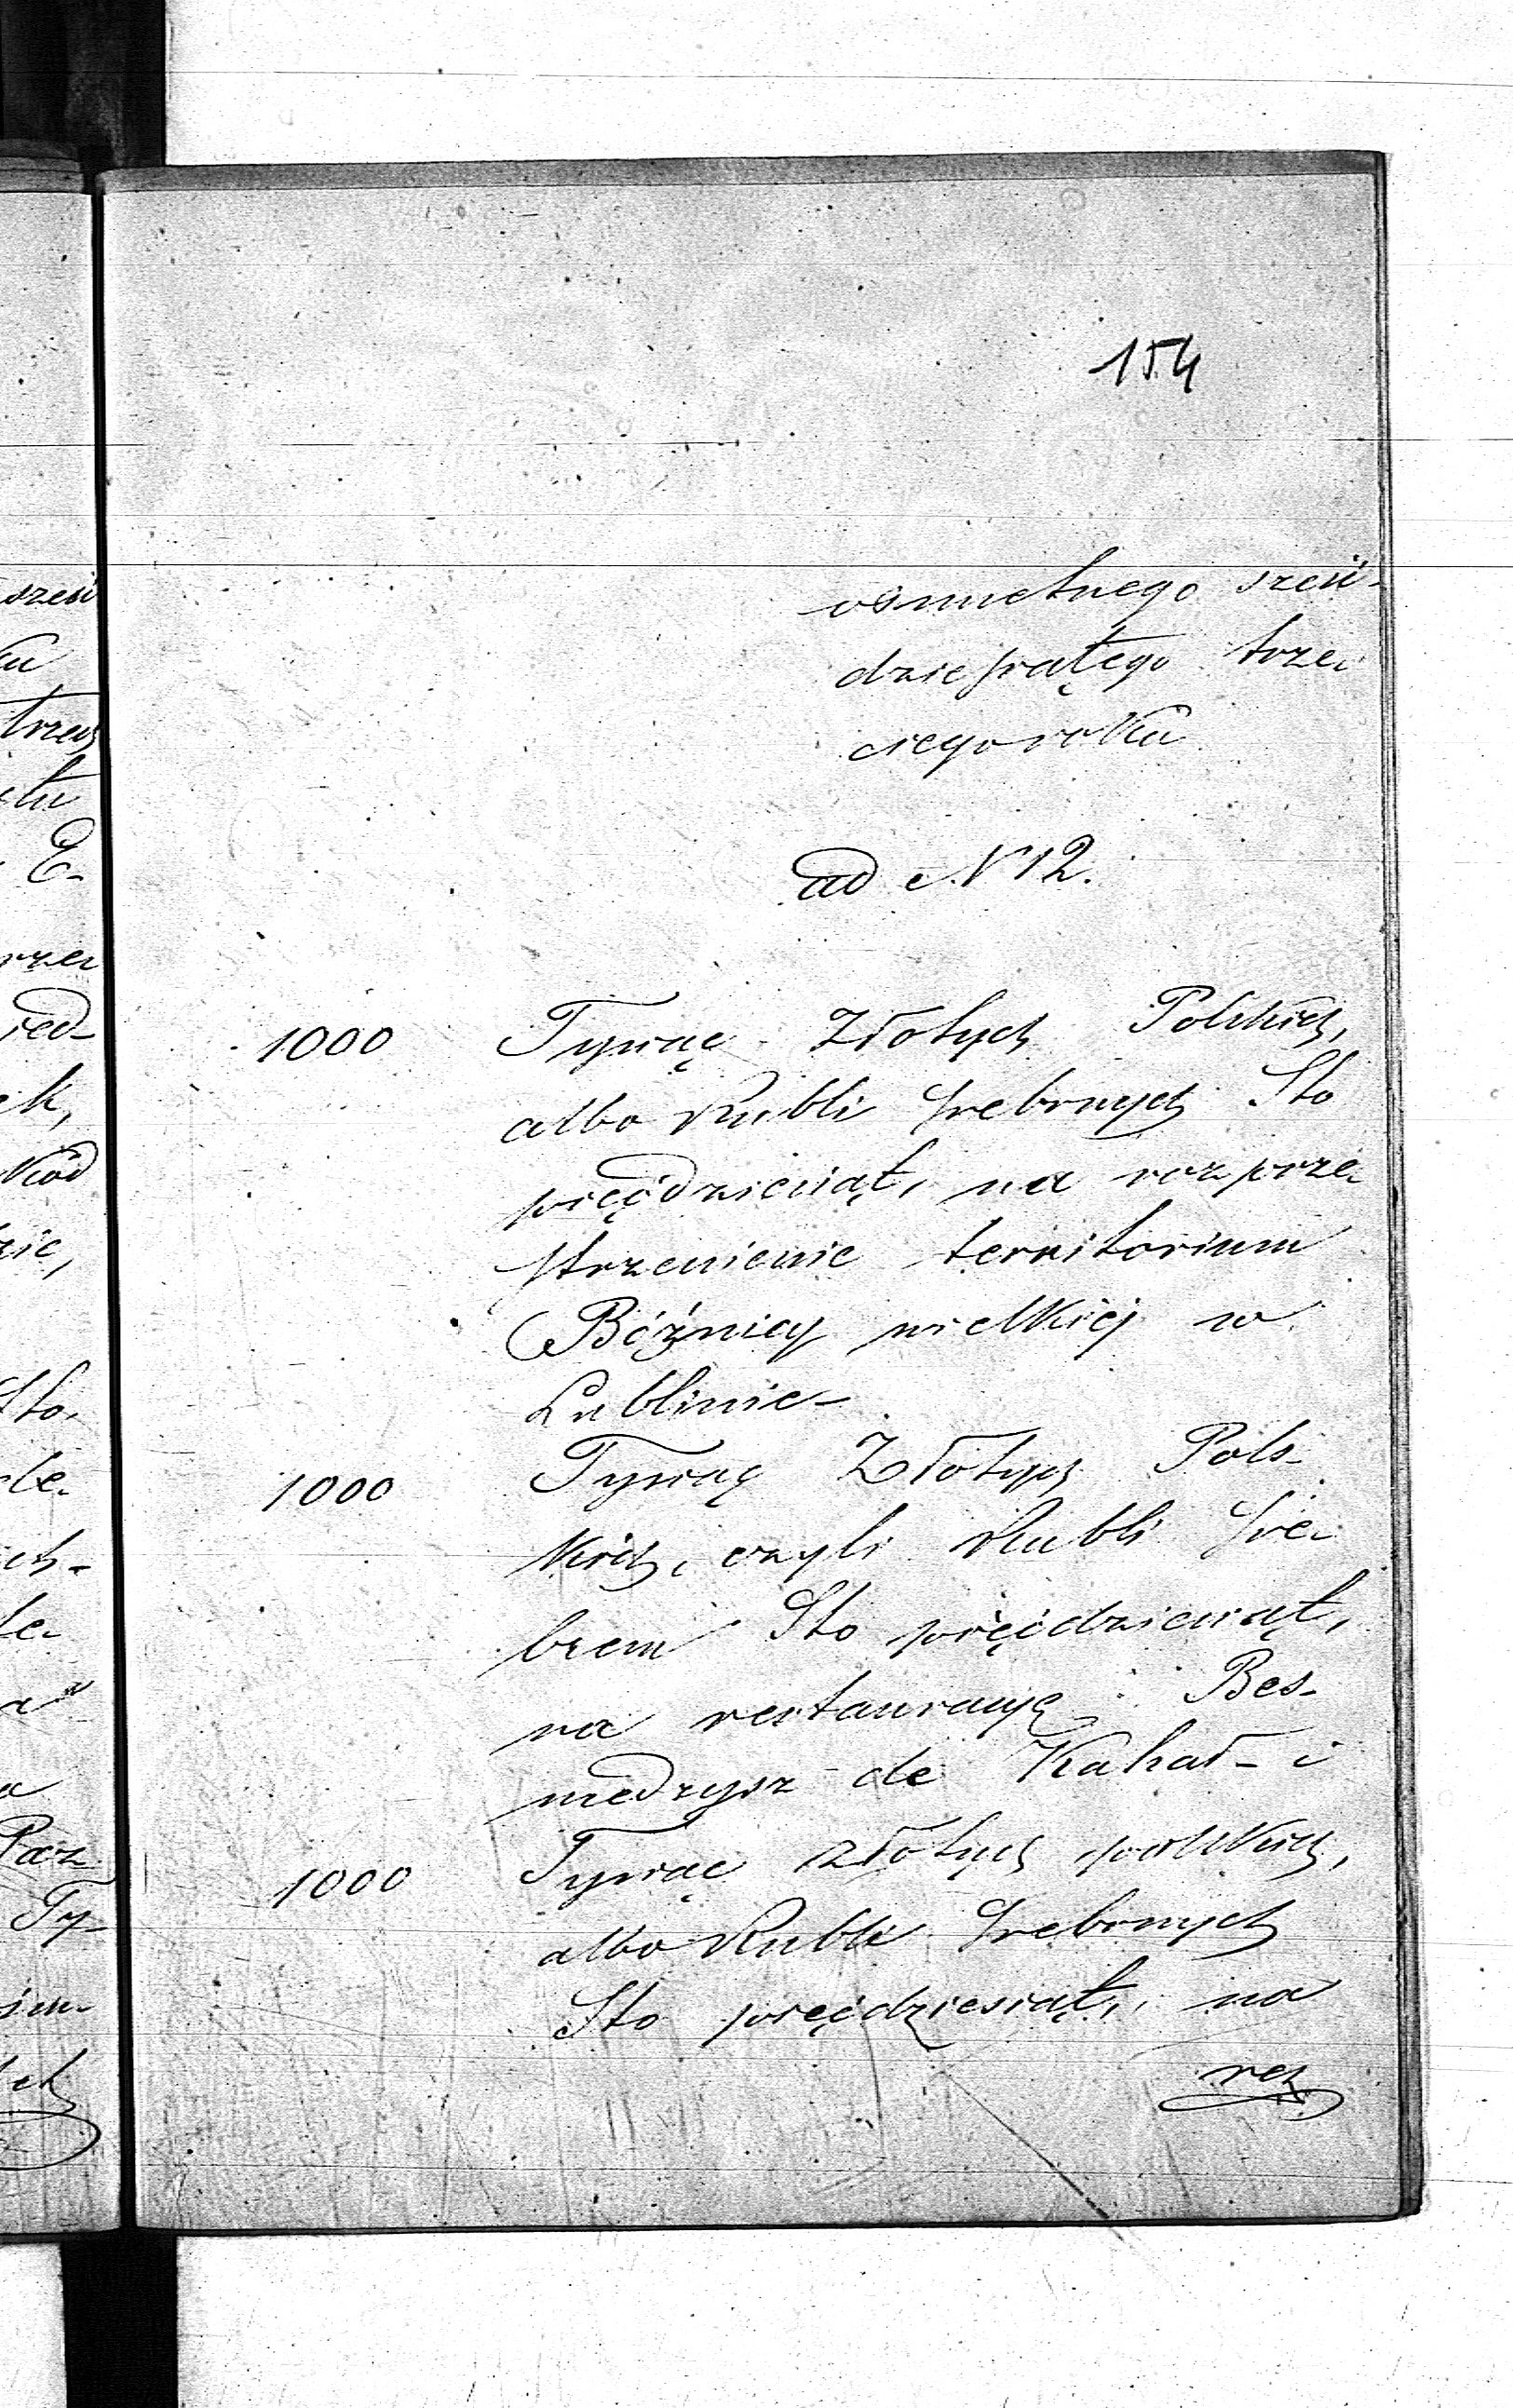 154
osmsetnego sześć-
dziesiątego trze-
ciego roku
ad N 12.
1000 Tysiąc Złotych Polskich,
albo Rubli srebrnych Sto
pięćdziesiąt, na rozprze-
strzenienie territorium
Bóźnicy wielkiej w
Lublinie-
1000 Tysiąc Złotych Pols-
kich, czyli Rubli sre-
brem Sto pięćdziesiąt,
na restauracyę Bes-
medrysz de Kahał- i
1000 Tysiąc złotych polskich,
albo Rubli srebrnych
Sto pięćdziesiąt, na